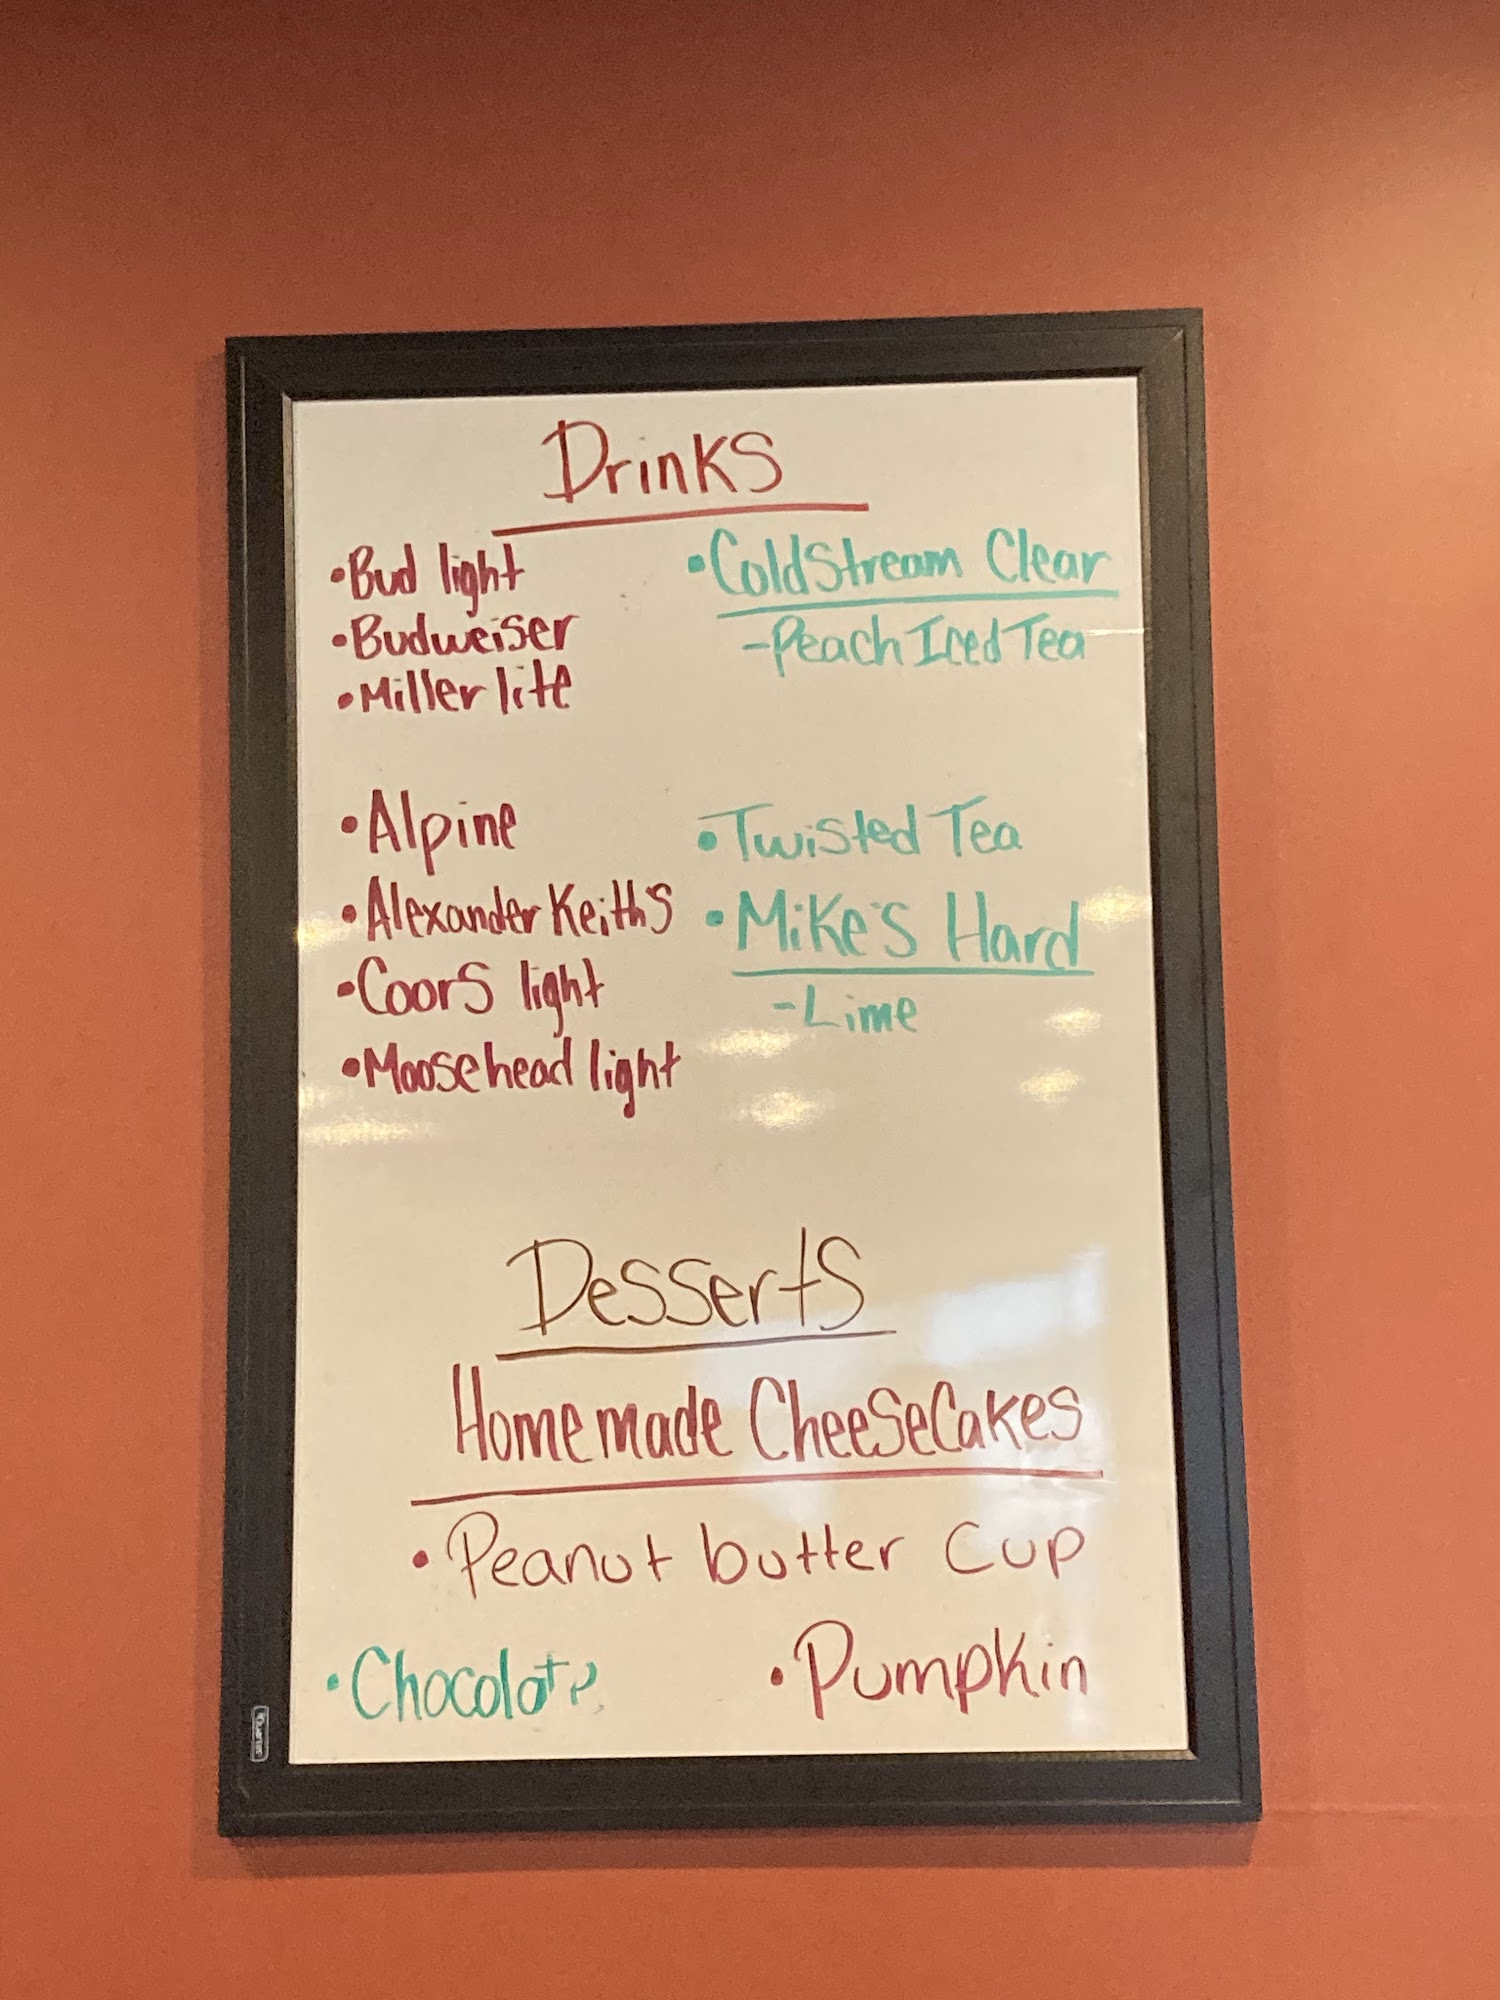 Drinks
•Bud light
•Budweiser
•Miller lite
•Alpine
•Alexander Keiths
•Coors light
•Moosehead light
•ColdStream Clear
-Peach Iced Tea
•Twisted Tea
•Mike's Hard
-Lime
Desserts
Homemade CheeseCakes
•Peanut butter Cup
•Chocolate
•Pumpkin
Quartet